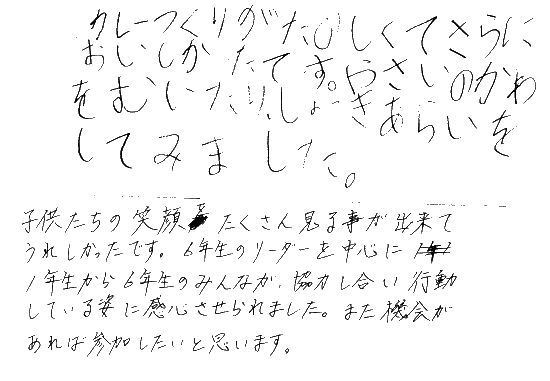 カレーつくりがたのしくてさらに
おいしかたてす。やさいのかわ
をむいたり、しょっきあらいを
してみました。
子供たちの笑顔をたくさん見る事が出来て
うれしかったです。6年生のリーダーを中心に
1年生から6年生のみんなが、協力し合い行動
している姿に感心させられました。また機会が
あれば参加したいと思います。